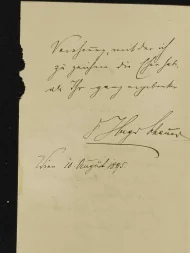 Verehrung, mit der ich
zu zeichnen die Ehre habe,
als Ihr ganz ergebenster
Dr Hugo
Wien 10. August 1895